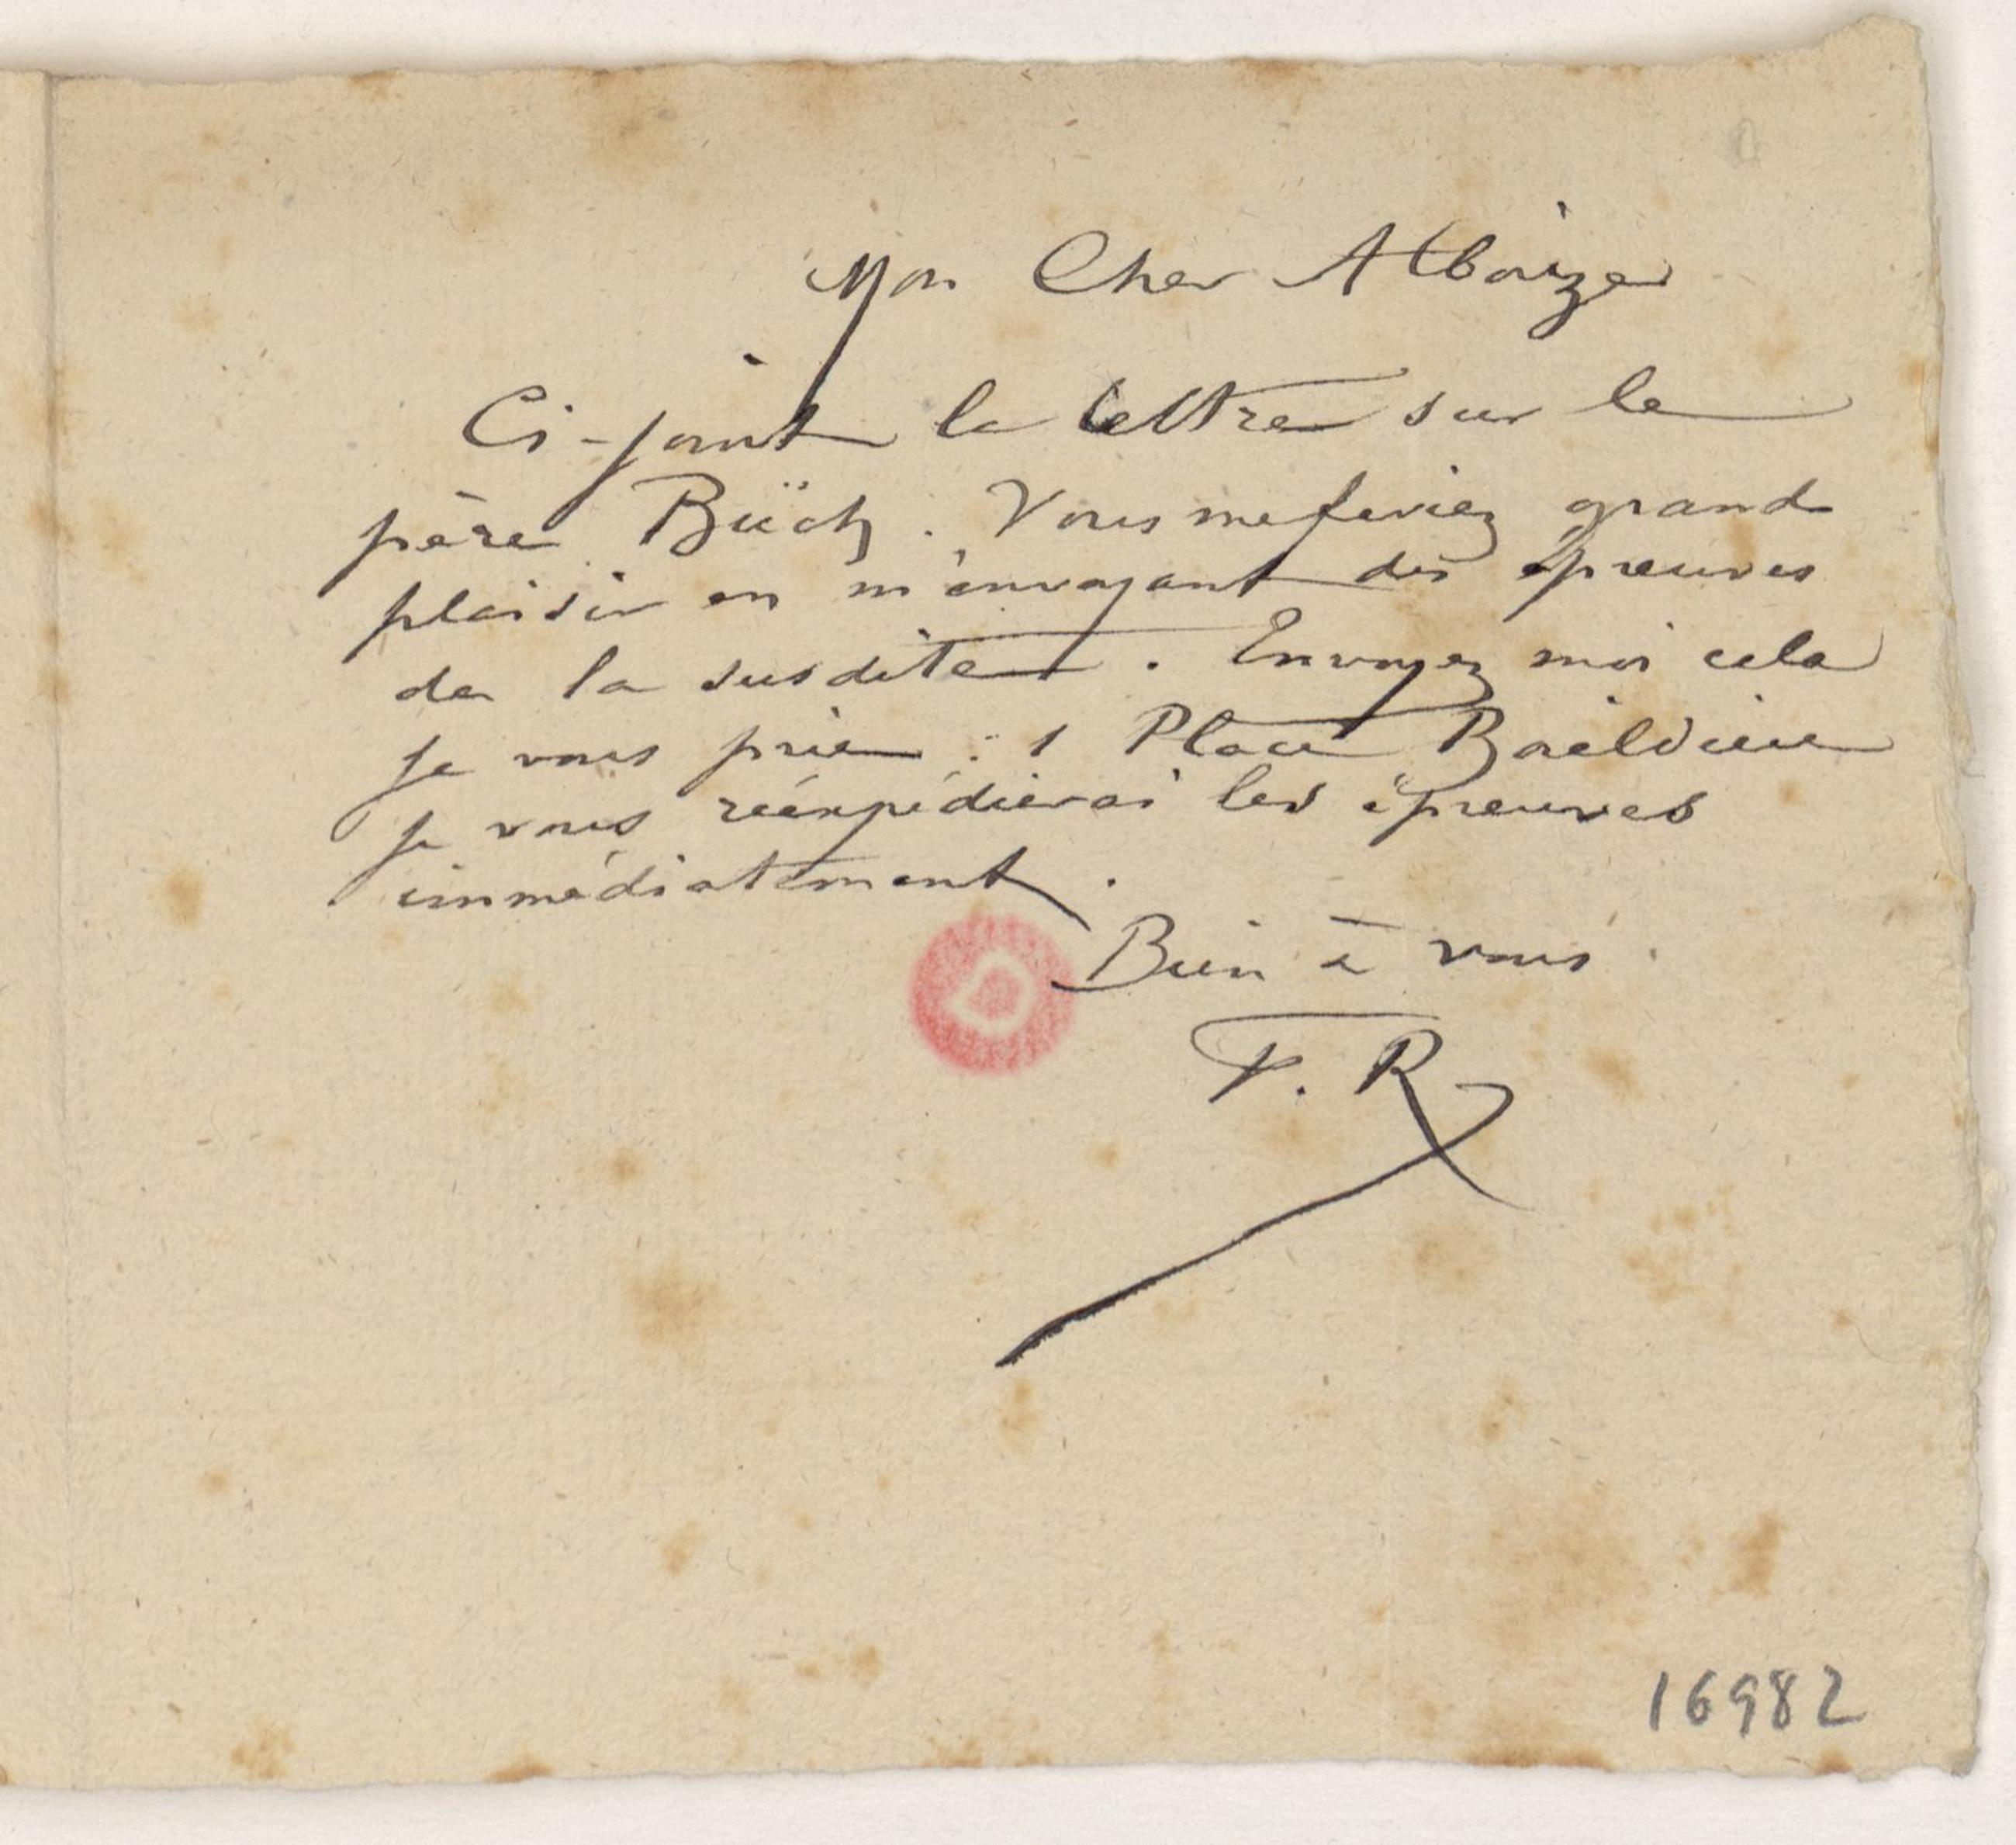 Mon Cher Alboize
Ci-joint la lettre sur le
père Büch. Vous me feriez grand
plaisir en m'envoyant des épreuves
de la susdite. Envoyez moi cela
je vous prie : 1 Place Boieldieu
je vous réexpédierai les épreuves
immédiatement.
Bien à vous
F. R
16982